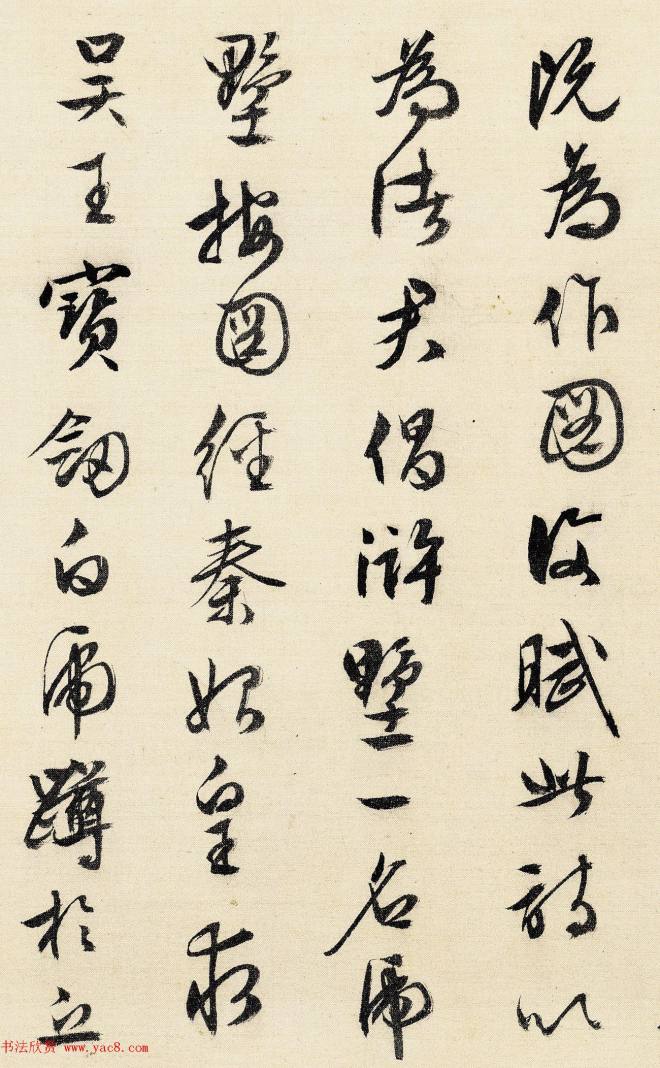 既為作圖後賦此詩以
為諸君倡滸墅一名虎
墅按圖經秦始皇求
吳王寶劒白虎蹲於丘
书法欣赏 www.yac8.com